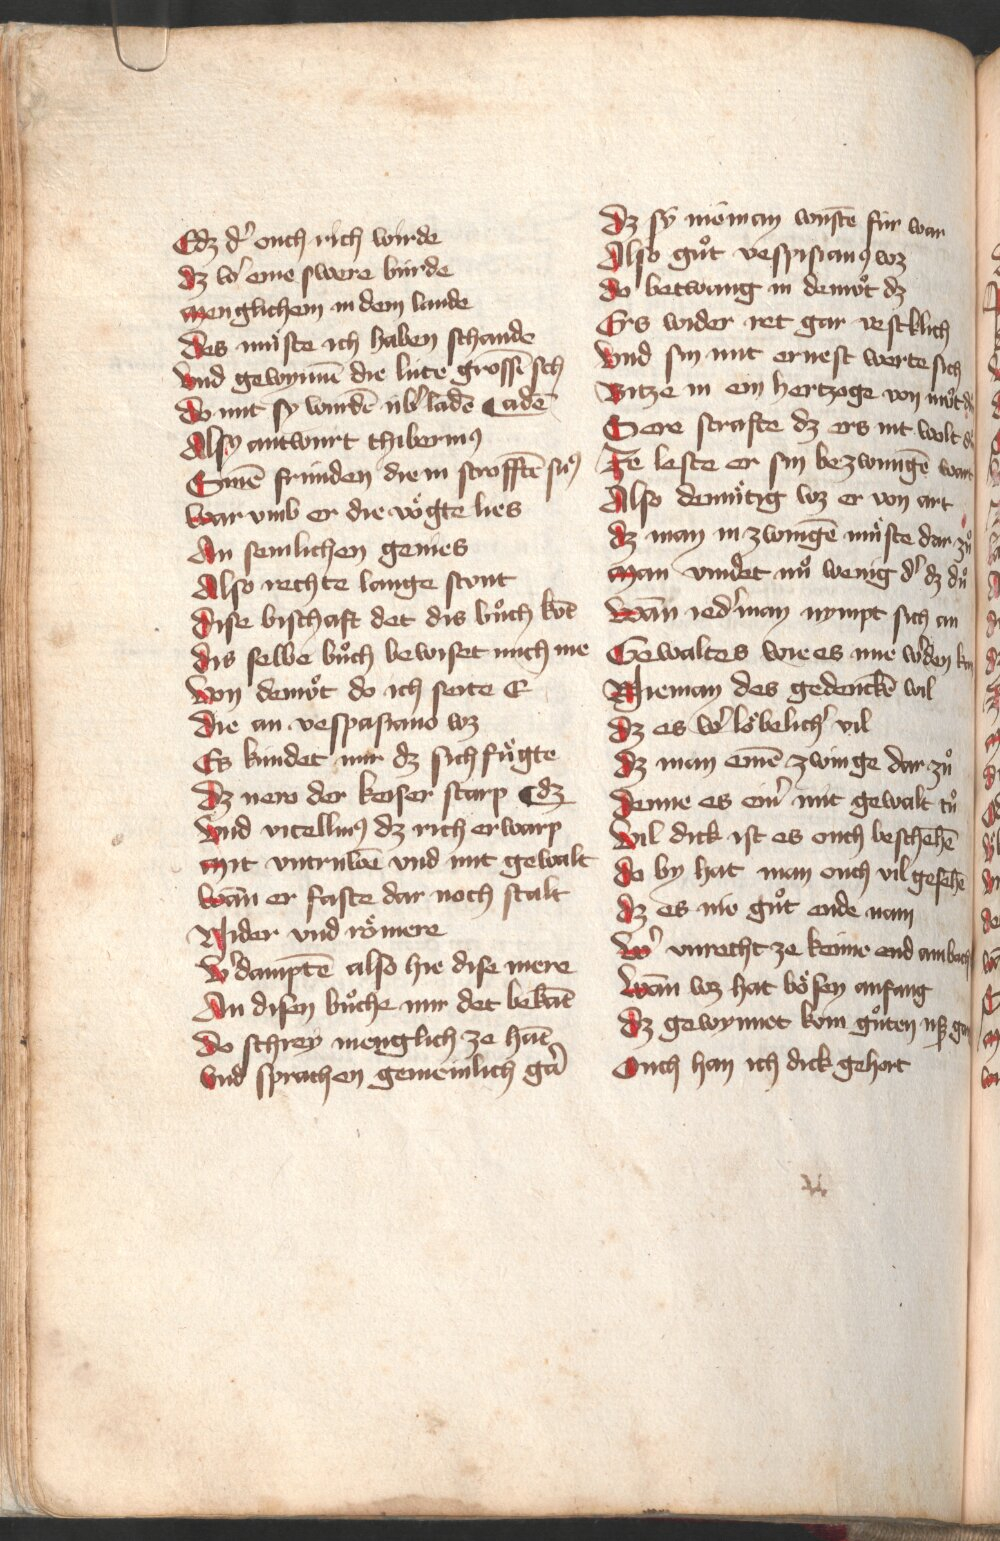 Edz d' ouch rich wirde
dz w' eine swere bürde
menglichem in dem lande
des müste ich haben schande
vnd gewynnē die lüte grossē sch
do mit sy wurdē üb' ladē ¶ adē
Also antwurt thiberius
Sinē fründen die in strofftē sus
war vmb er die vögte lies
An semlichen genies
Also rechte lange stunt
Dise bischaft det dis bůch kōt
dis selbe bůch bewiset mich me
von demůt do ich seite E
die an vespasiano wz
Es kündet mir dz sich fůgte
dz nero der keiser starp ¶ dz
vnd vitellius dz rich erwarp
mit vntruwē vnd mit gewalt
wān er faste dar noch stalt
Rider vnd römere
v'damptē also hie dise mere
An disen bůche mir det bekāt
do schrey menglich ze hāt
vnd sprachen gemeinlich gār
dz sy nieman wustē für war
Also gůt vespisianus wz
do betwang in demůt dz
Ers wider ret gar vestklich
vnd sin mit ernest werte sich
Witze in ein hertzoge von
Sere strafte dz ers nit wolt
Ze leste er sin bezwungē wart
Also demůtig wz er von art
dz man in zwingē müste dar zů
man vindet nů wenig d' dz dů
wān ied'man nympt sich an
Gewaltes wie es me w'den kan
Nieman des gedenckē wil
dz es w' löbelich' vil
dz man einē zwinge dar zů
denne es ein' mit gewalt tů
vil dick ist es ouch beschehē
do by hat man ouch vil gesehē
dz es nie gůt ende nam
w' vnrecht ze keine end ambach
wān wz hat bösen anfang
dz gewynnet kom gůten
Ouch han ich dick gehort